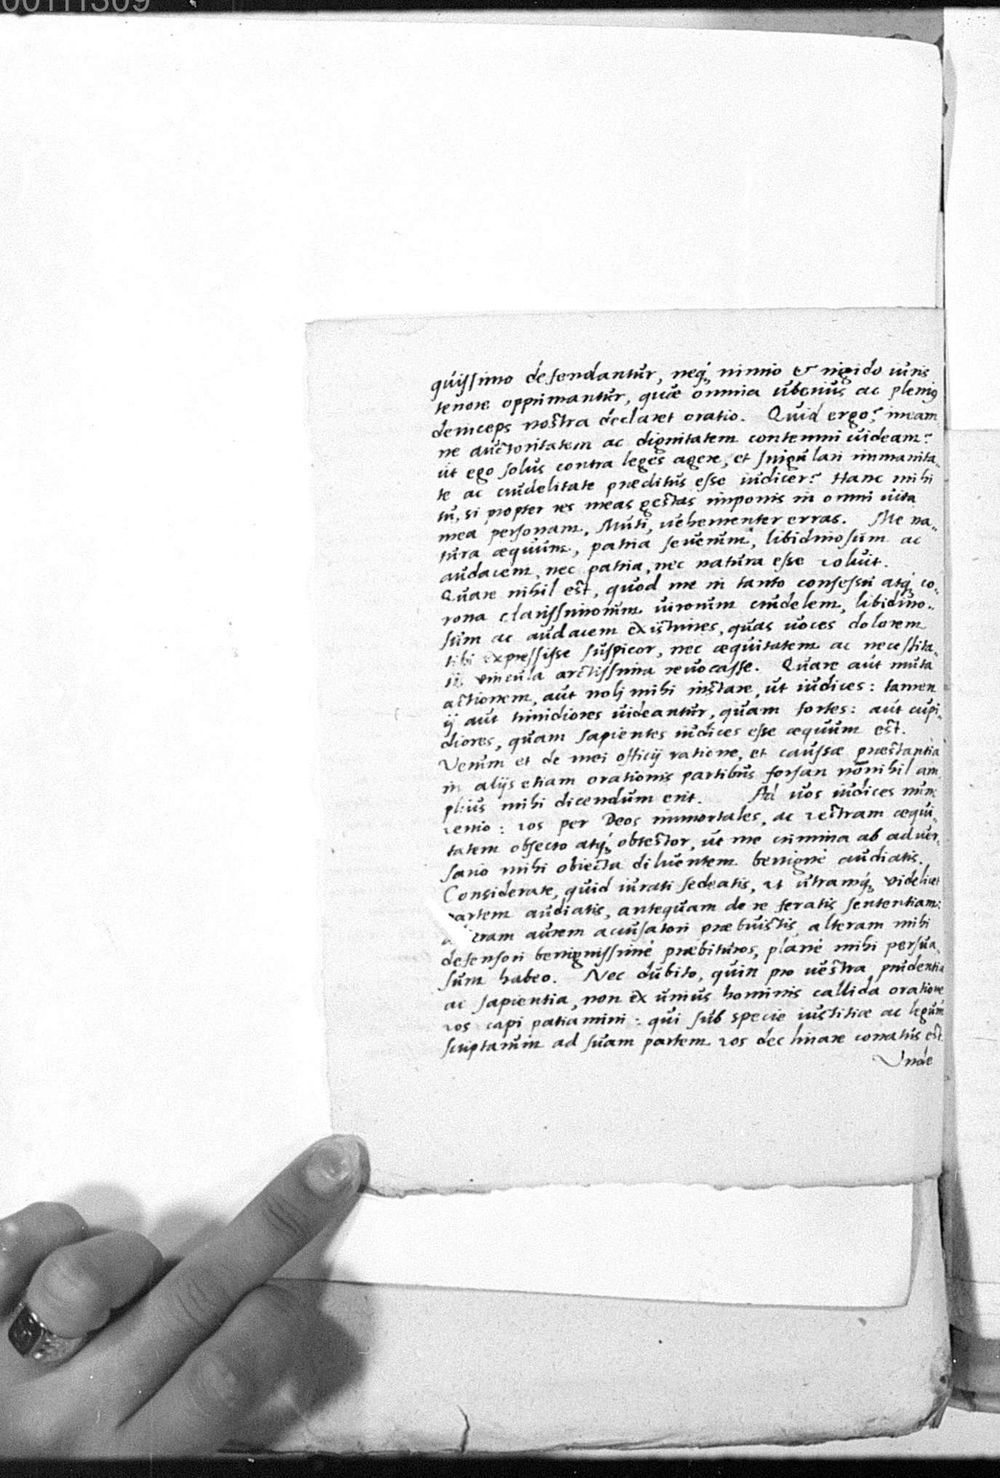 00111309
quissimo defendantur, neq; nimio et rigido iuris
tenore opprimantur, quæ omnia uberius ac plenius
deinceps nostra declaret oratio. Quid ergo? meam
ne auctoritatem ac dignitatem contemni uideam?
ut ego solus contra leges agere, et singulari immanita-
te ac crudelitate præditus esse iudicer? Hanc mihi
tu, si propter res meas gestas imponis in omni uita
mea personam, Muti, uehementer erras. Me na-
tura æquum, patria seuerum, libidinosum ac
audacem, nec patria, nec natura esse voluit.
Quare nihil est, quod me in tanto consessu atq; co-
rona clarissimorum uirorum crudelem, libidino-
sum ac audacem existimes, quas uoces dolorem
tibi expressisse suspicor, nec æquitatem ac necessita-
tis vincula arctissima reuocasse. Quare aut muta
actionem, aut noli mihi instare, ut iudices: tamen
ij aut timidiores uideantur, quam fortes: aut cupi-
diores, quam sapientes iudices esse æquum est.
Verum et de mei officij ratione, et caussæ præstantia
in alijs etiam orationis partibus forsan nonnihil am
plius mihi dicendum erit. Ad uos iudices nunc
venio: vos per Deos immortales, ac vestram æqui-
tatem obsecro atq; obtestor, ut me crimina ab aduer-
sario mihi obiecta diluentem benigne audiatis.
Considerate, quid iurati sedeatis, ut utramq; videlicet
partem audiatis, antequam de re feratis sententiam:
alteram aurem accusatori præbuistis, alteram mihi
defensori benignissime præbituros, plane mihi persua-
sum habeo. Nec dubito, quin pro uestra prudentia
ac sapientia, non ex unius hominis callida oratione
vos capi patiamini: qui sub specie iustitiæ ac legum
scriptarum ad suam partem vos declinare conatus est.
Vnde